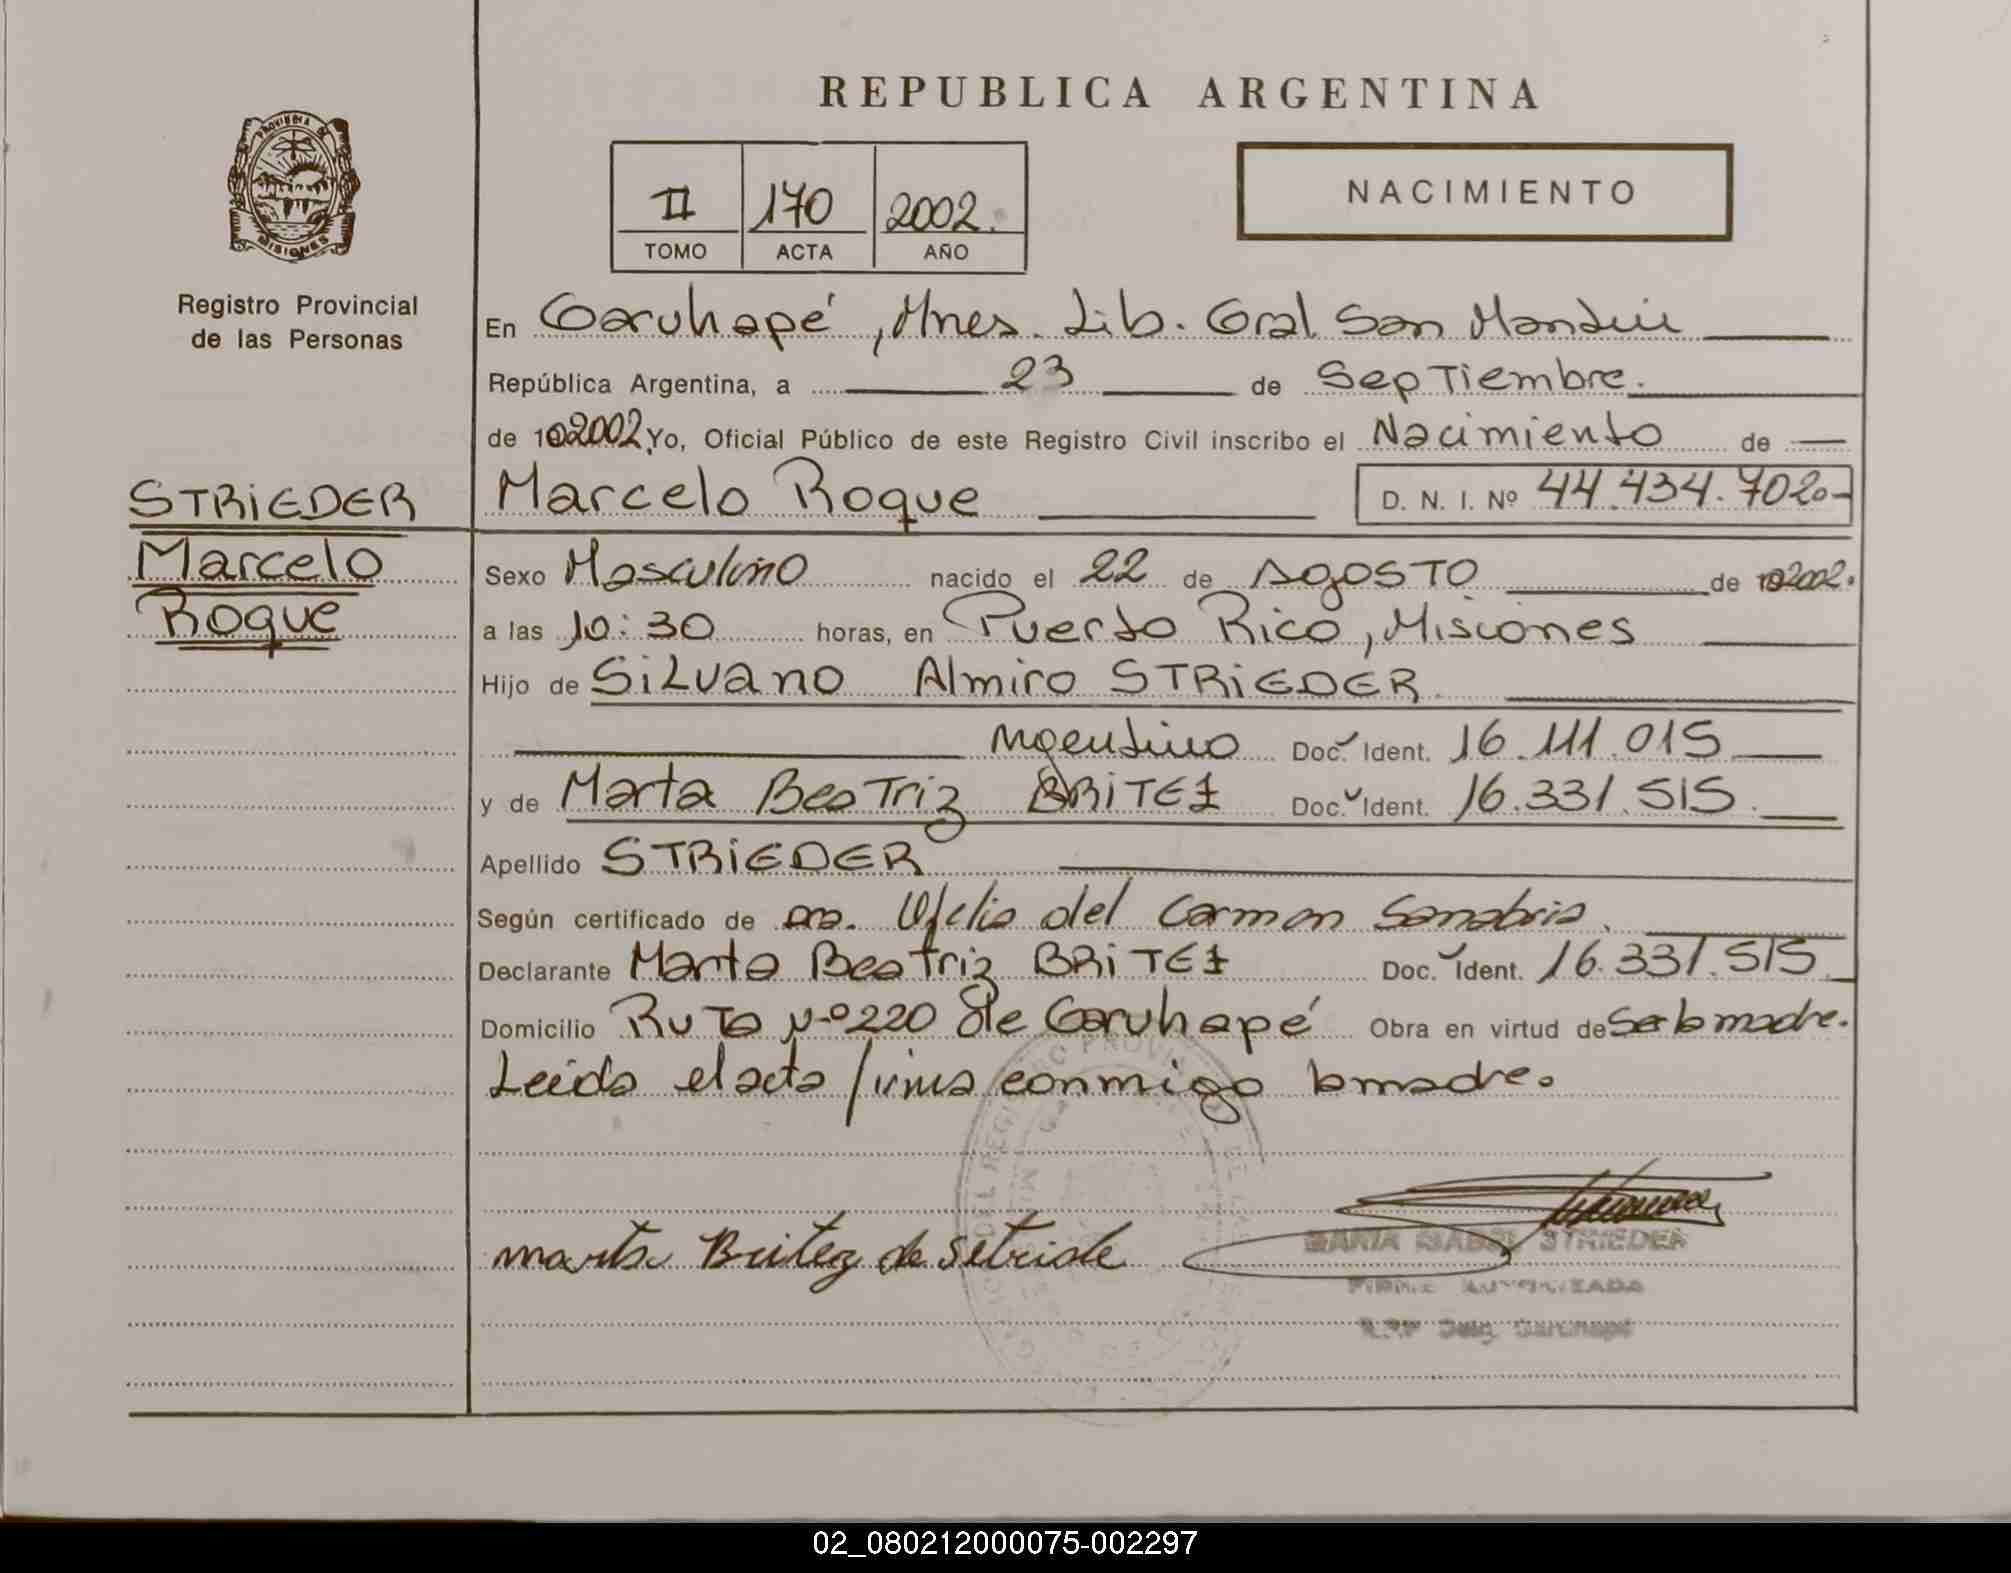 REPUBLICA ARGENTINA
PROVINCIA DE
MISIONES
Registro Provincial
de las Personas
II 170 2002.
TOMO ACTA AÑO
NACIMIENTO
En Garuhapé, Mnes. Lib. Gral San Martin
República Argentina, a 23 de Septiembre.
de 2002, Yo, Oficial Público de este Registro Civil inscribo el Nacimiento de
STRIEDER
Marcelo
Roque
Marcelo Roque D. N. I. Nº 44.434.702.-
Sexo Masculino nacido el 22 de Agosto de 2002.
a las 10:30 horas, en Puerto Rico, Misiones
Hijo de Silvano Almiro STRIEDER
Argentino Doc. Ident. 16.111.015
y de Marta Beatriz BRITEZ Doc. Ident. 16.331.515
Apellido STRIEDER
Según certificado de Dra. Ofelia del Carmen Sanabria.
Declarante Marta Beatriz BRITEZ Doc. Ident. 16.331.515
Domicilio Ruta Nº 220 de Garuhapé Obra en virtud de Ser la madre.
Leida el acta firma conmigo la madre.
marta Britez de Setride
MARIA ISABEL STRIEDER
FIRMA AUTORIZADA
R.P.P Deleg. Garuhapé
02_080212000075-002297